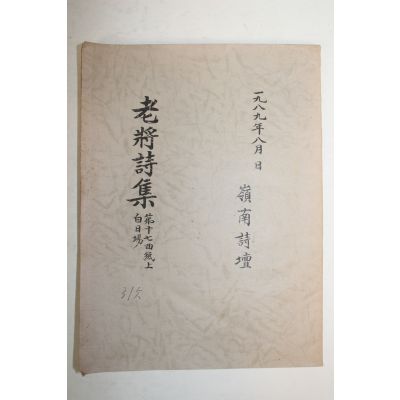 一九八九年八月 日
嶺南詩壇
老將詩集
第十七回紙上
白日場